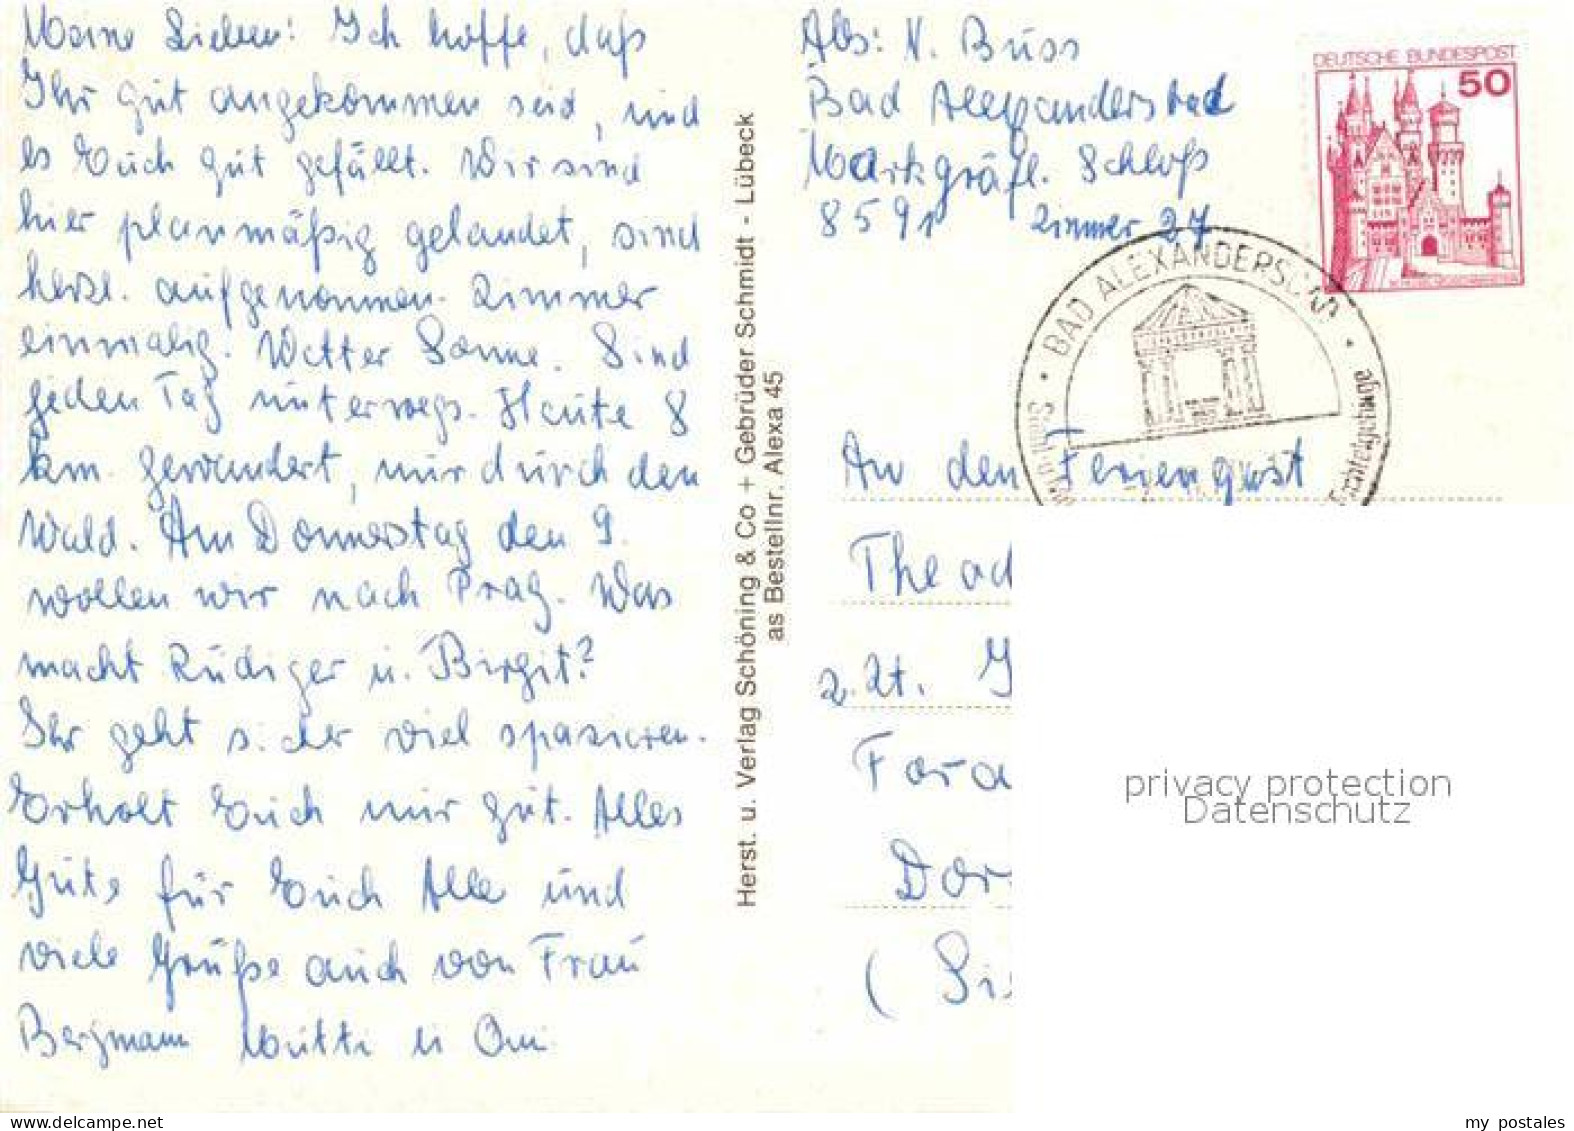 Meine Lieben: Ich hoffe, daß
Ihr gut angekommen seid, und
es Euch gut gefällt. Wir sind
hier planmäßig gelandet, sind
herzl. aufgenommen. Zimmer
einmalig. Wetter Sonne. Sind
jeden Tag unterwegs. Heute 8
km. gewandert, nur durch den
Wald. Am Donnerstag den 9.
wollen wir nach Prag. Was
macht Rüdiger u. Birgit?
Ihr geht sicher viel spazieren.
Erholt Euch nur gut. Alles
Gute für Euch Alle und
viele Grüße auch von Frau
Bergmann Mutti u Omi
Herst. u. Verlag Schöning & Co + Gebrüder Schmidt - Lübeck
as Bestellnr. Alexa 45
Abs: N. Buss
Bad Alexandersbad
Markgräfl. Schloß
8591 Zimmer 27
DEUTSCHE BUNDESPOST
50
BAD ALEXANDERSBAD
Fichtelgebirge
An den Feriengast
Thead
z. Zt.
Fora
Dor
(Sie
privacy protection
Datenschutz
my postales